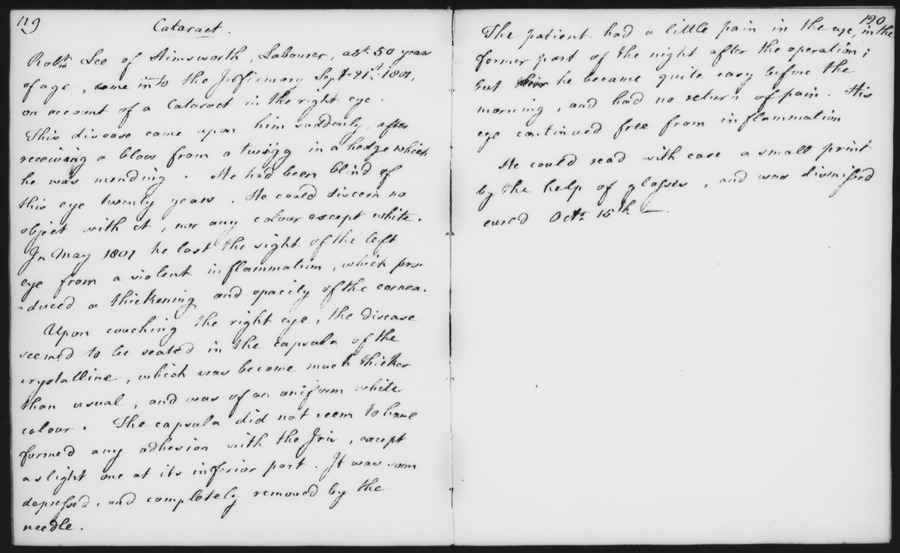 119
Cataract.
Robt. Lee of Ainsworth, Labourer, abt. 50 years
of age, came into the Infirmary Sept. 21st. 1801,
on account of a Cataract in the right eye.
This disease came upon him suddenly, after
receiving a blow from a twigg in a hedge which
he was mending. He had been blind of
this eye twenty years. He could discern no
object with it, nor any colour except white.
In May 1801 he lost the sight of the left
eye from a violent inflammation, which pro-
-duced a thickening and opacity of the cornea.
Upon couching the right eye, the disease
seemed to be seated in the capsula of the
crystalline, which was become much thicker
than usual, and was of an uniform white
colour. The capsula did not seem to have
formed any adhesion with the Iris, except
a slight one at its inferior part. It was soon
depressed, and completely removed by the
needle.
120
The patient had a little pain in the eye, in the
former part of the night after the operation;
but he became quite easy before the
morning, and had no return of pain. His
eye continued free from inflammation
He could read with ease a small print
by the help of glasses, and was dismissed
cured Octr. 15th —